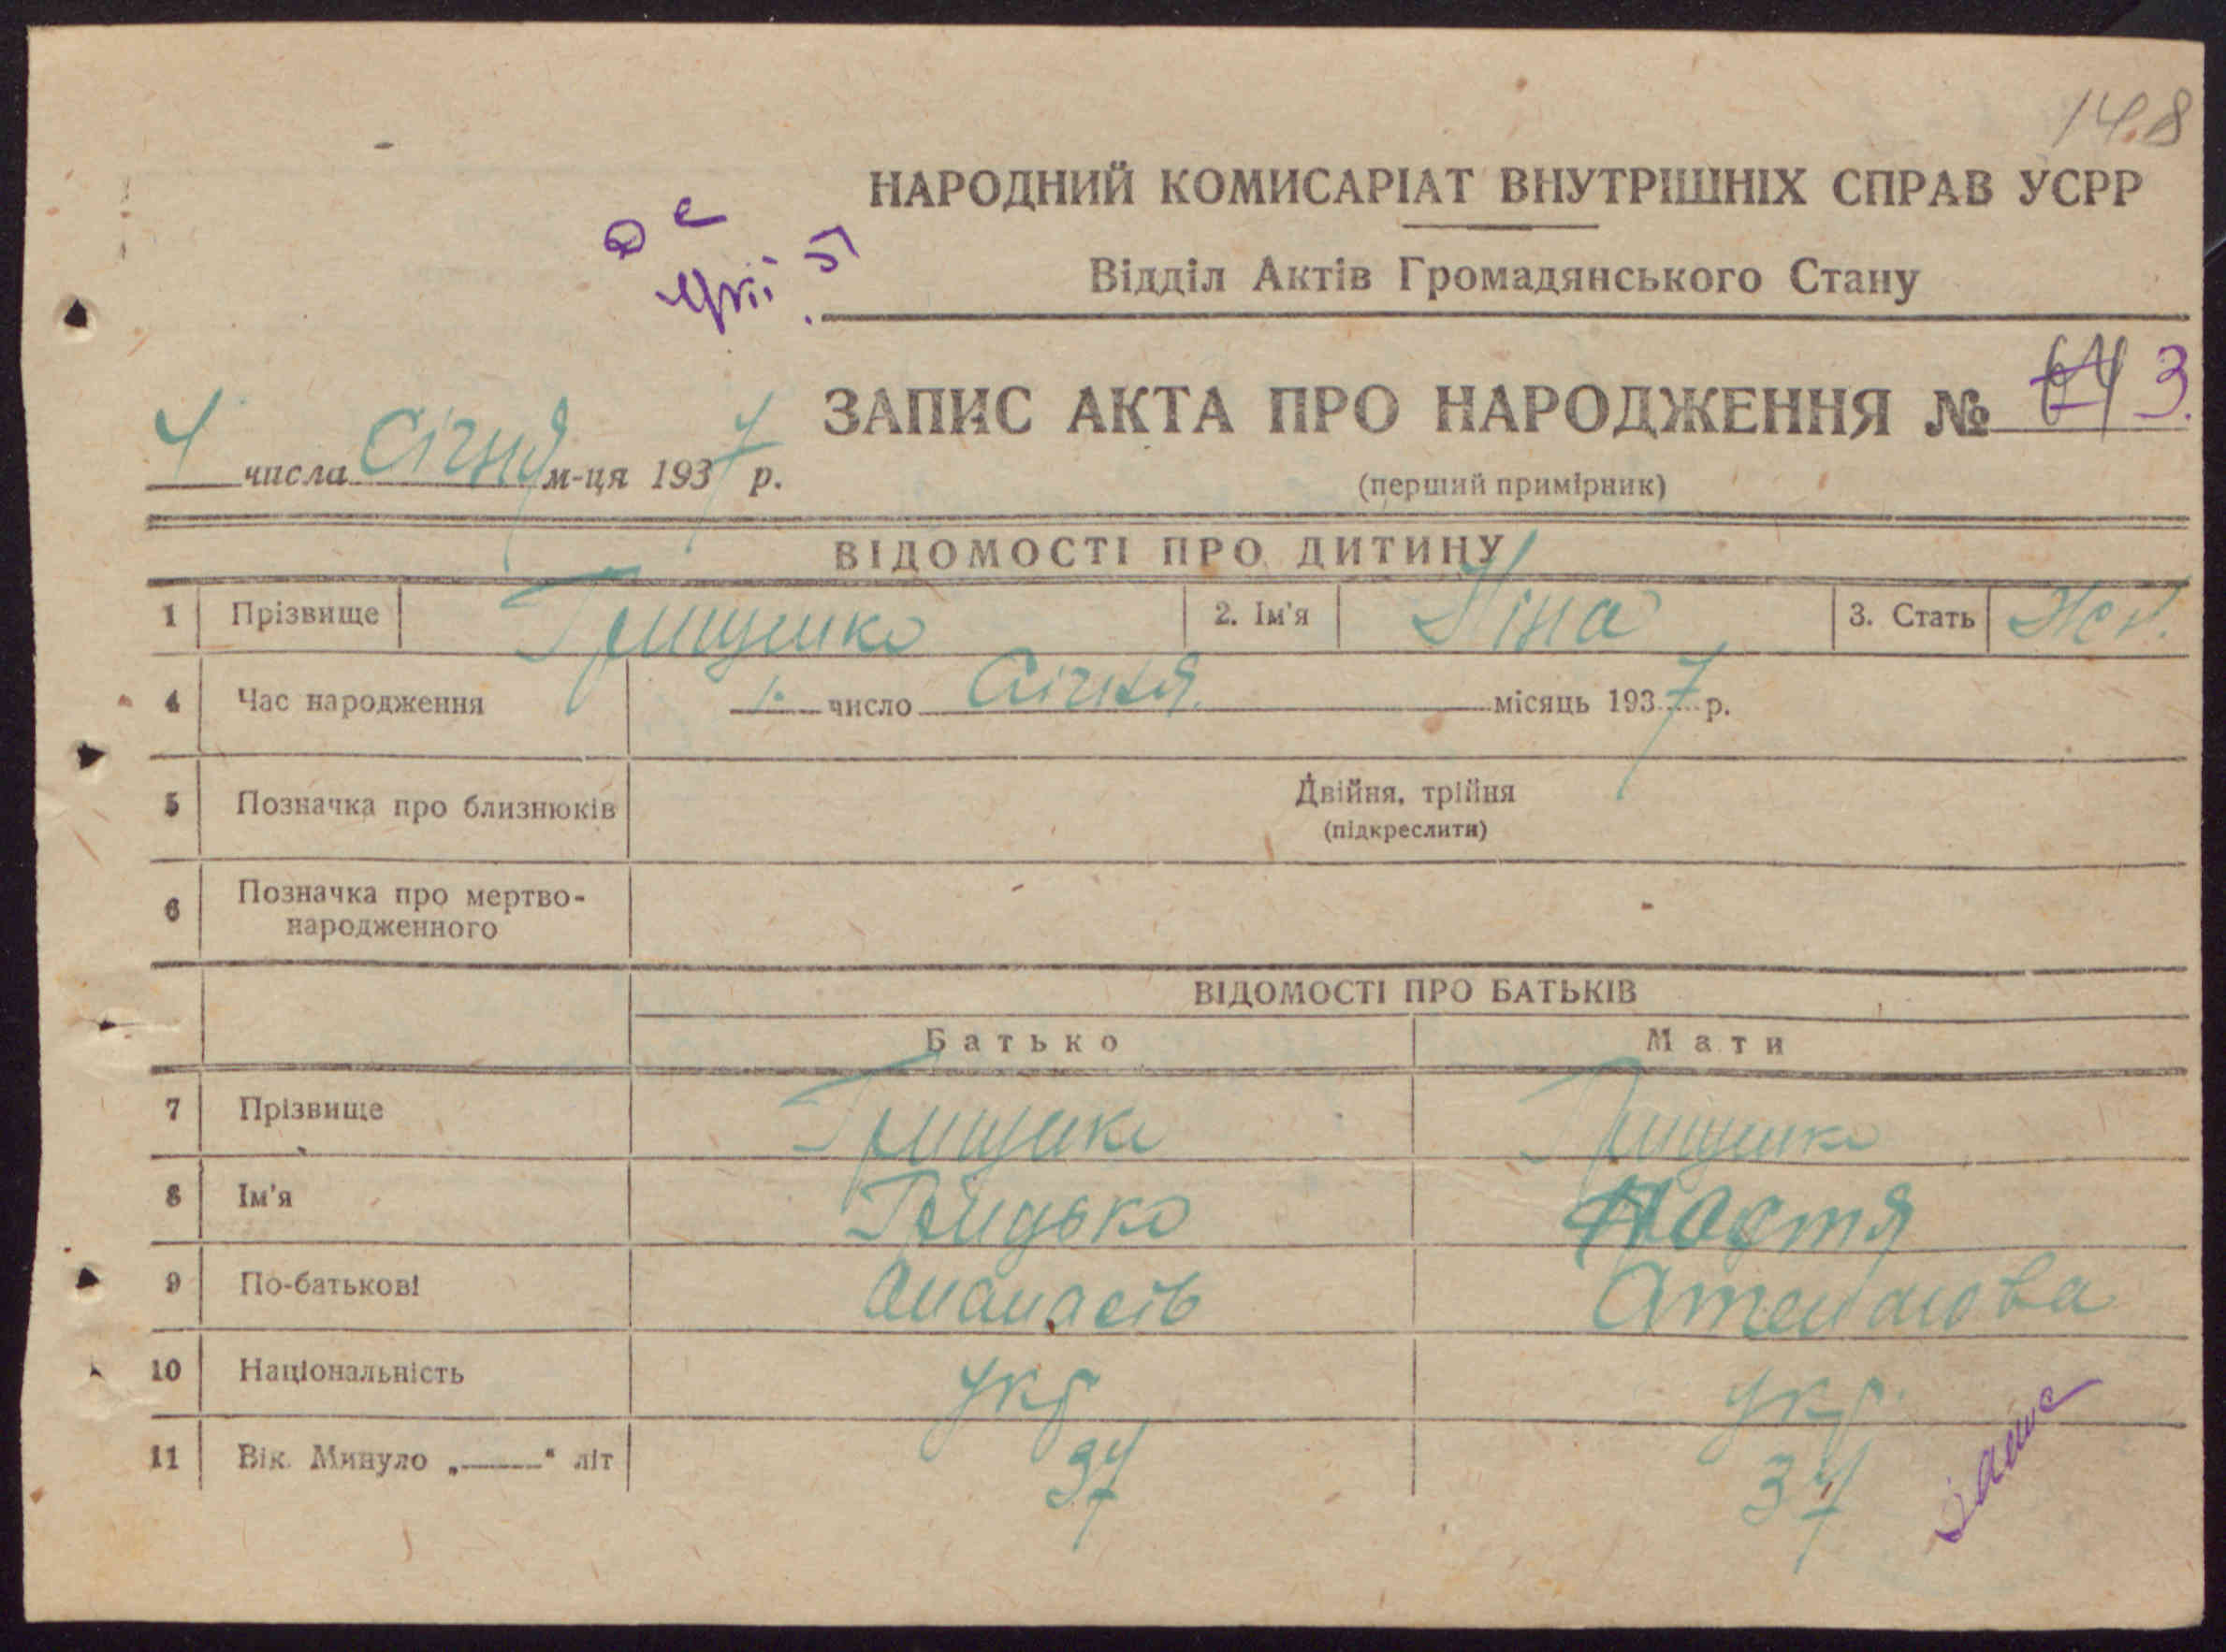 148
НАРОДНИЙ КОМИСАРІАТ ВНУТРІШНІХ СПРАВ УСРР
Відділ Актів Громадянського Стану
ЗАПИС АКТА ПРО НАРОДЖЕННЯ № 64 3.
4 числа Січня м-ця 1937 р.
(перший примірник)
ВІДОМОСТІ ПРО ДИТИНУ
1 Прізвище Грищенко 2. Ім'я Ніна 3. Стать Жін.
4 Час народження 1. число Січня. місяць 1937 р.
5 Позначка про близнюків Двійня, трійня
(підкреслити)
6 Позначка про мертво-
народженного
ВІДОМОСТІ ПРО БАТЬКІВ
Батько Мати
7 Прізвище Грищенко Грищенко
8 Ім'я Грицько Настя
9 По-батькові
10 Національність укр укр.
11 Вік. Минуло „——" літ 37 37